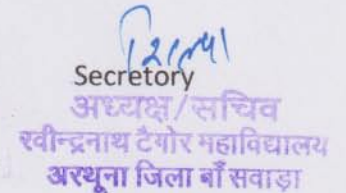 Secretory
अध्यक्ष/सचिव
रवीन्द्रनाथ टैगोर महाविद्यालय
अरथूना जिला बाँसवाड़ा